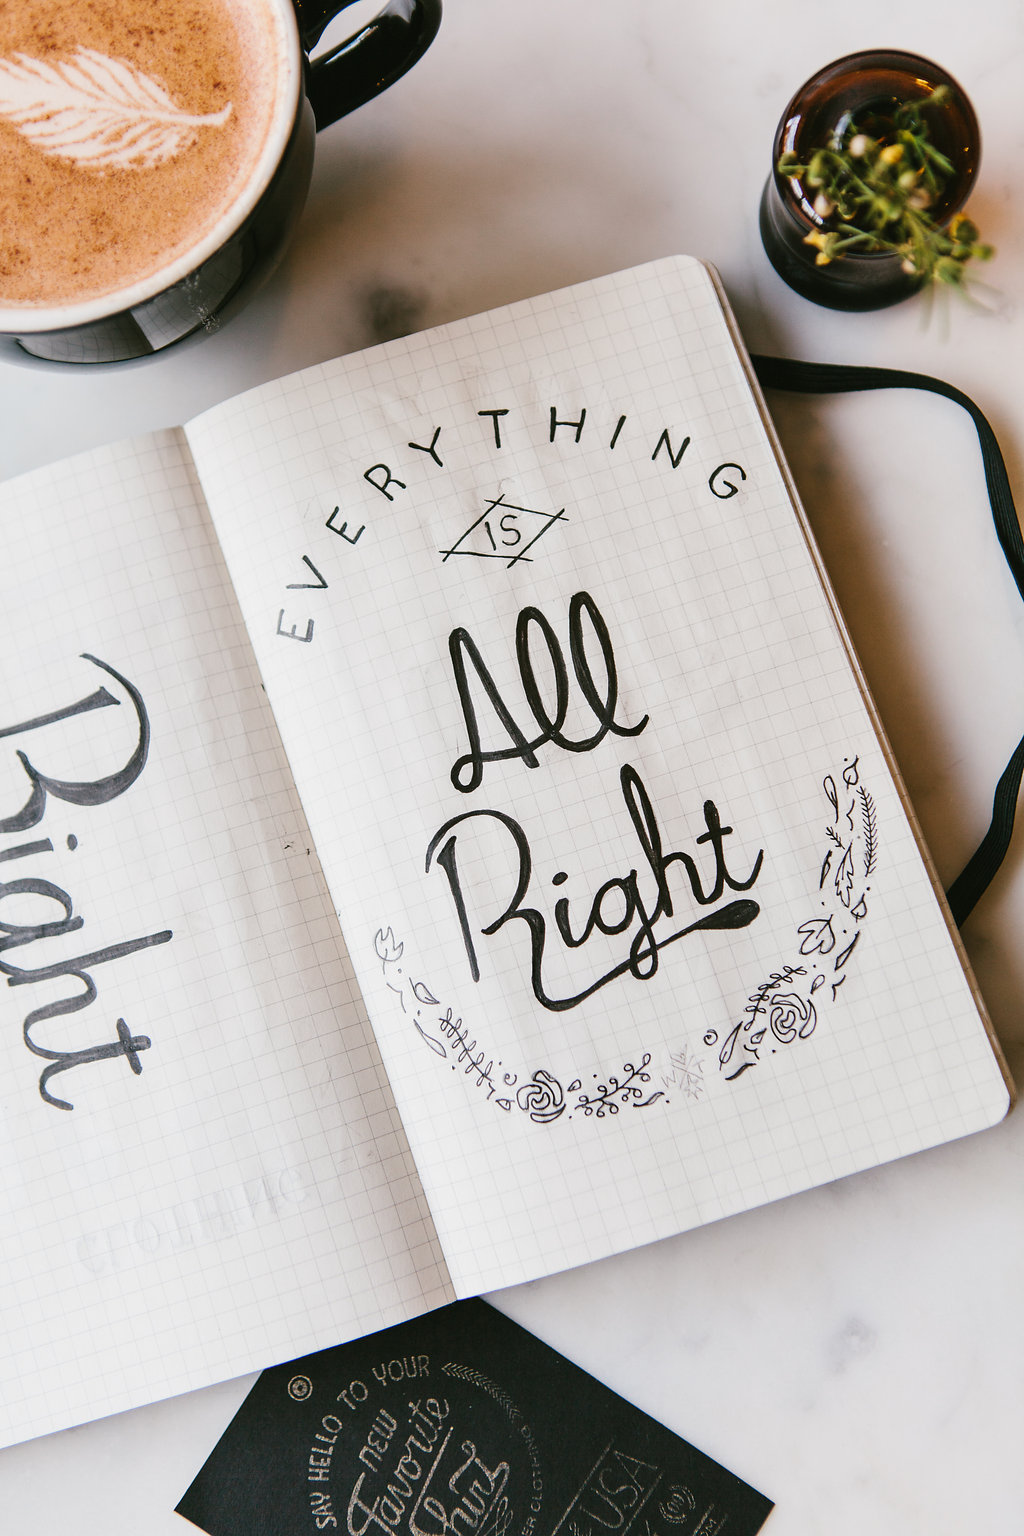 Right
CLOTHING
EVERYTHING
IS
All
Right
SAY HELLO TO YOUR
new
Favorite
Shirt
CLOTHING
USA